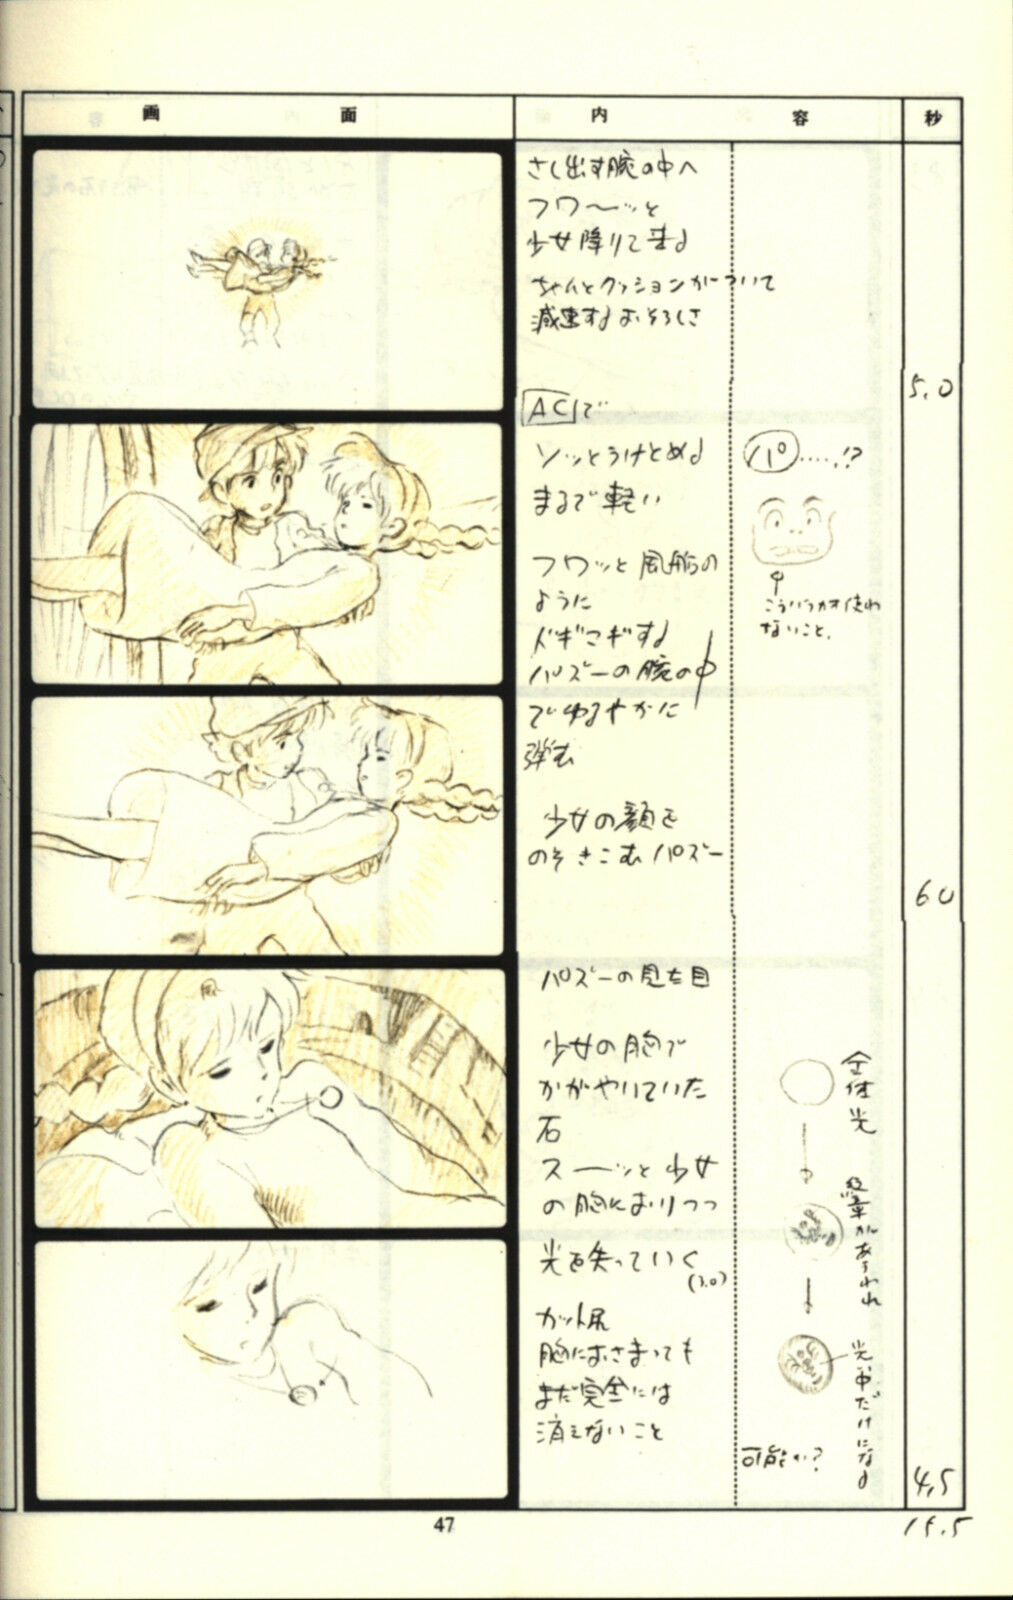 画面
内容
秒
さし出す腕の中へ
フワ〜ッと
少女降りて来る
ちゃんとクッションがついて
減速するおそろしさ
5.0
ACで
ソッとうけとめる
まるで軽い
フワッと風船の
ように
ドギマギする
パズーの腕の中
でゆるやかに
弾む
パ……!?
こういうカオ使わ
ないこと.
少女の顔を
のぞきこむパズー
6.0
パズーの見た目
少女の胸で
かがやいていた
石
スーッと少女
の胸におりつつ
光を失っていく
(3.0)
カット尻
胸におさまっても
まだ完全には
消えないこと
全体光
紋章があらわれ
光い中だけになる
可能か?
4.5
15.5
47